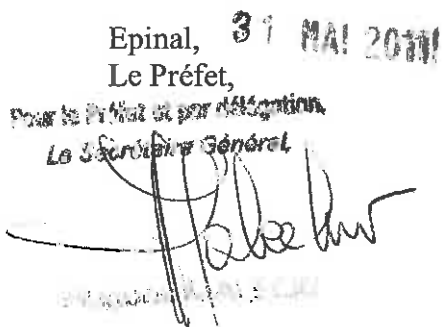 Epinal, 31 MAI 2011
Le Préfet,
Pour le Préfet et par délégation,
Le Secrétaire Général,